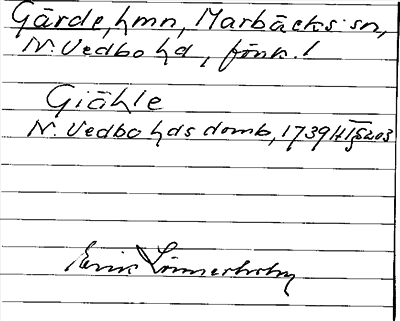 Gärde, hmn, Marbäcks sn,
N. Vedbo hd, fönk. !
Giähle
N. Vedbo hds domb, 1739
Erik Linnerholm